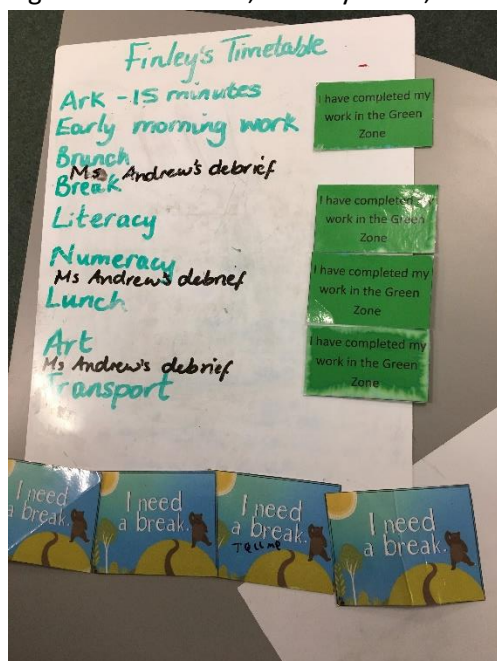 Finley's Timetable
Ark - 15 minutes
Early morning work
Brunch
Ms Andrew's debrief
Break
Literacy
Numeracy
Ms Andrew's debrief
Lunch
Art
Ms Andrew's debrief
Transport
I have completed my
work in the Green
Zone
I have completed my
work in the Green
Zone
I have completed my
work in the Green
Zone
I have completed my
work in the Green
Zone
I need
a break.
I need
a break.
I need
a break.
TELL ME
I need
a break.